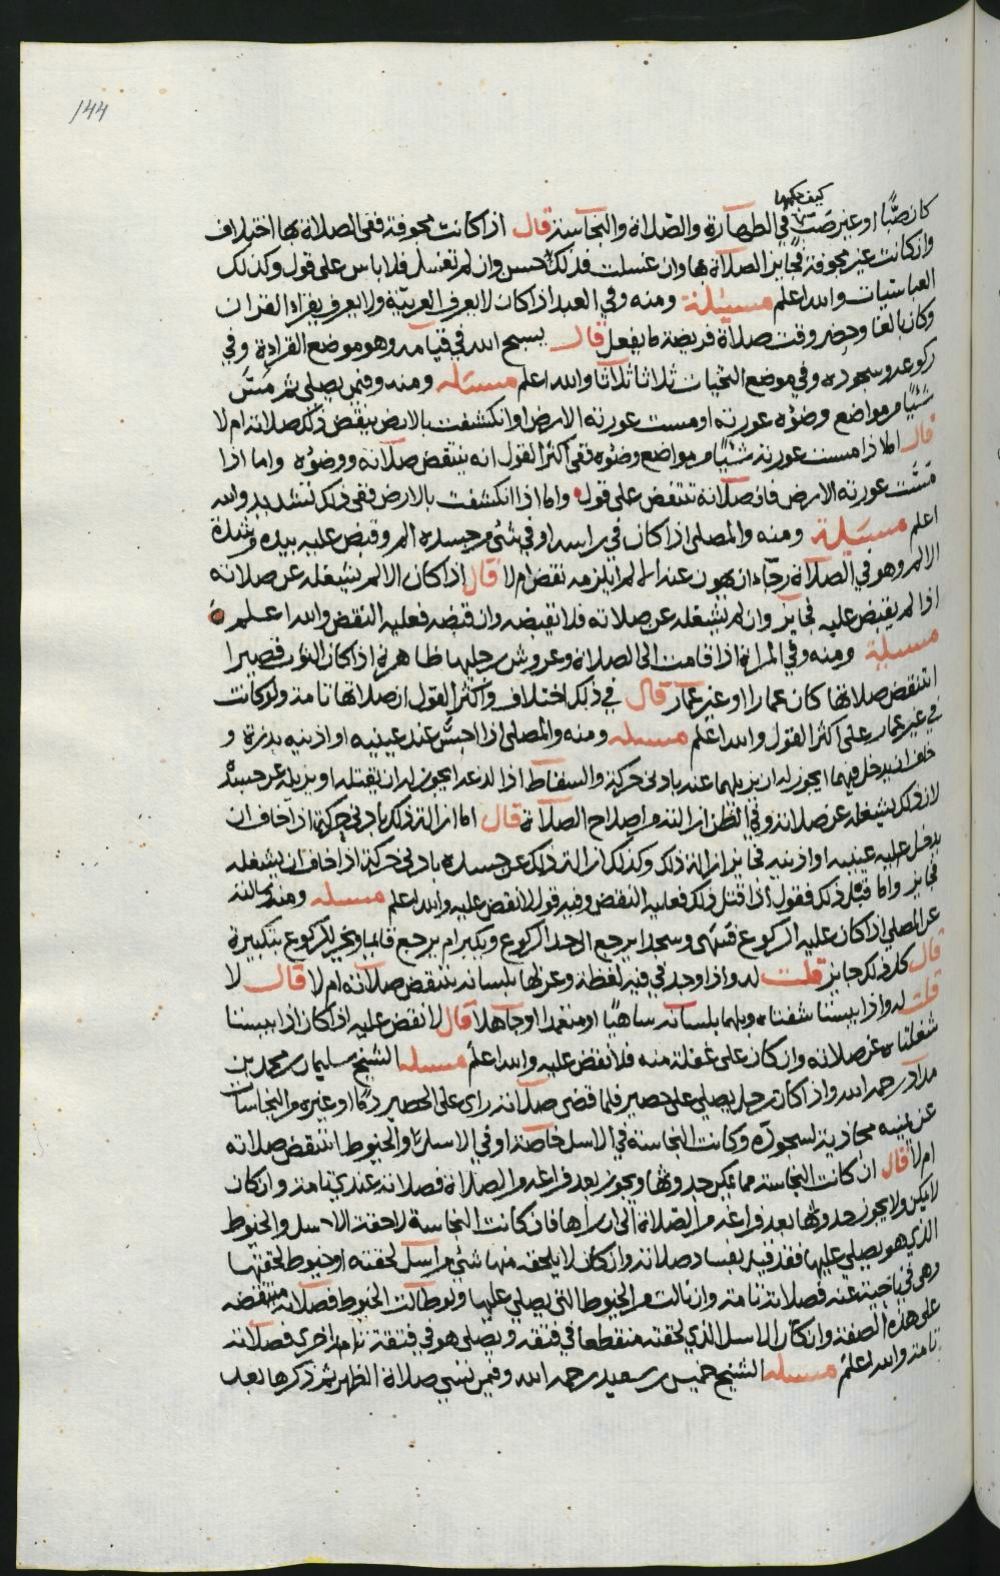 144
كيف حكمها
كان صبًّا او غير صب في الطهارة والصلاة والنجاسة قال اذا كانت مجوفة ففي الصلاة بها اختلاف
وان كانت غير مجوفة فجايز الصلاة بها وان غسلت فذلك حسن وان لم تغسل فلا باس على قول وكذلك
العباسيات والله اعلم مسئلة ومنه وفي العبد اذا كان لا يعرف العربية ولا يعرف يقراء القران
وكان بالغا وحضر وقت صلاة فريضة ما يفعل قال يسبح الله في قيامه وهو موضع القراءة وفي
ركوعه وسجوده وفي موضع التحيات ثلاثا ثلاثا والله اعلم مسئله ومنه وفيمن يصلي ثم مسَّ
شيئًا من مواضع وضؤه عورته او مست عورته الارض او انكشفت بالارض ينقض ذلك صلاته ام لا
قال اما اذا مست عورته شيئًا من مواضع وضوءه ففي اكثر القول انه ينتقض صلاته ووضوءه واما اذا
مسَّت عورته الارض فان صلاته تنتقض على قول واما اذا انكشفت بالارض ففي ذلك تشديد والله
اعلم مسئلة ومنه والمصلي اذا كان في راسه او في شئ من جسده الم وقبض عليه بيده من شدة
الالم وهو في الصلاة رجاء ان يهون عنه الالم ايلزمه نقض ام لا قال اذا كان الالم يشغله عن صلاته
اذا لم يقبض عليه فجايز وان لم يشغله عن صلاته فلا يقبضه وان قبضه فعليه النقض والله اعلم
مسئلة ومنه وفي المراة اذا قامت الى الصلاة وعروش رجليها ظاهرة اذا كان الثوب قصيرا
اتنتقض صلاتها كان عمارا او غير عمار قال في ذلك اختلاف واكثر القول ان صلاتها تامة ولو كانت
في غير عمار على اكثر القول والله اعلم مسئله ومنه والمصلي اذا احسَّ عند عينيه او اذنيه بذرة و
خاف ان يدخل فيهما ايجوز له ان يزيلهما عنه بادنى حركة والسقاط اذا لدغه ايجوز له ان يقتله او يزيله عن جسده
لان ذلك يشغله عن صلاته وفي الظن ازالته من اصلاح الصلاة قال اما ازالة ذلك بادنى حركة اذا خاف ان
يدخل عليه عينيه او اذنيه فجايز ازالة ذلك وكذلك ازالة ذلك عن جسده بادنى حركة اذا خاف ان يشغله
فجايز واما قتل ذلك فقول اذا قتل ذلك فعليه النقض وفيه قول لا نقض عليه والله اعلم مسئله ومنه سالته
عن المصلي اذا كان عليه الركوع فنسي وسجد ايرجع الى حد الركوع ويكبر ام يرجع قايما ويخر للركوع بتكبيرة
قال كل ذلك جايز قلت له واذا وجد في فيه لفظة وعزلها بلسانه ينتقض صلاته ام لا قال لا
قلت له واذا يبستا شفتاه وبلهما بلسانه ساهيًا او متعمدا او جاهلا قال لا نقض عليه اذا كان اذا يبستا
شغلتاه عن صلاته وان كان على غفلة منه فلا نقض عليه والله اعلم مسئله الشيخ سليمان بن محمد بن
مداد رحمه الله واذا كان رجل يصلي على حصير فلما قضى صلاته راى على الحصير دمًا او غيره من النجاسات
عن يمينه محاذية لسجوده وكانت النجاسة في الاسل خاصة او في الاسل والخيوط اتنتقض صلاته
ام لا قال ان كانت النجاسة مما يمكن حدوثها ويجوز بعد فراغه من الصلاة فصلاته عندي تامة وان كان
لا يمكن ولا يجوز حدوثها بعد فراغه من الصلاة الى ان راها فان كانت النجاسة لاحقة الاسل والخيوط
الذي هو يصلي عليها فقد قيل بفساد صلاته وان كان لا يلحقه منها شئ من اسل لحقته او خيوط لحقتها
وهي في ناحية عنه فصلاته تامة وان نالت من الخيوط التي يصلي عليها ولو طالت الخيوط فصلاته منتقضه
على هذه الصفة وان كان الاسل الذي لحقته منقطعا في فتقه ويصلي هو في فتقة تامة اخرى فصلاته
تامة والله اعلم مسئله الشيخ خميس بن سعيد رحمه الله وفيمن نسي صلاة الظهر ثم ذكرها بعد